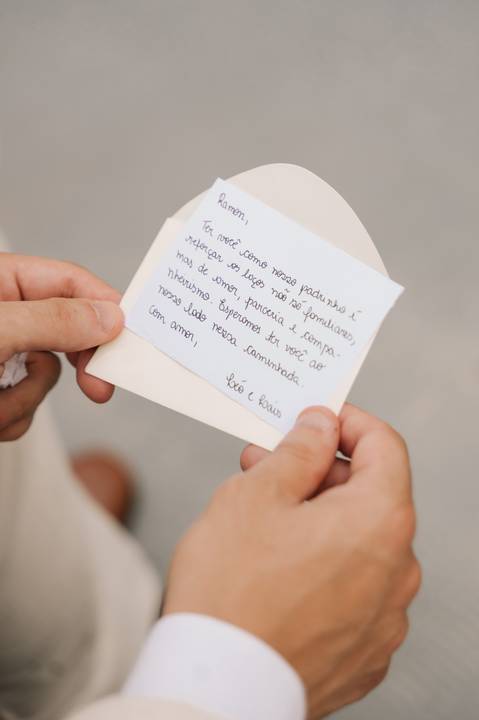 Ramon,
Ter você como nosso padrinho é
reforçar os laços não só familiares,
mas de amor, parceria e compa-
nheirismo. Esperamos ter você ao
nosso lado nessa caminhada.
Com amor,
Léo e Laís